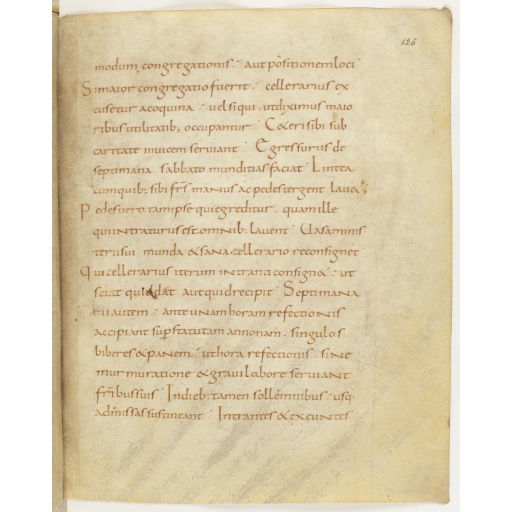 126
modum congregationis · aut positionem loci
Si maior congregatio fuerit · cellerarius ex
cusetur a coquina · uel si qui ut diximus maio
ribus utilitatib; occupantur · Ceteri sibi sub
caritate inuicem seruiant · Egressurus de
septimana · sabbato munditias faciat · Lintea
cum quib; sibi frs manus ac pedes tergent lauet;
Pedes uero tam ipse qui egreditur · quam ille
qui intraturus est omnib; lauent · Uasa minis
terii sui munda & sana cellerario reconsignet
Qui cellerarius iterum intranti consign& · ut
sciat quid dat aut quid recipit · Septimana
rii autem · ante unam horam refectionis
accipiant sup statutam annonam · singulos
biberes & panem · ut hora refectionis · sine
murmuratione & graui labore seruiant
frībus suis · In dieb; tamen sollemnibus · usq;
ad missas sustineant · Intrantes & exeuntes